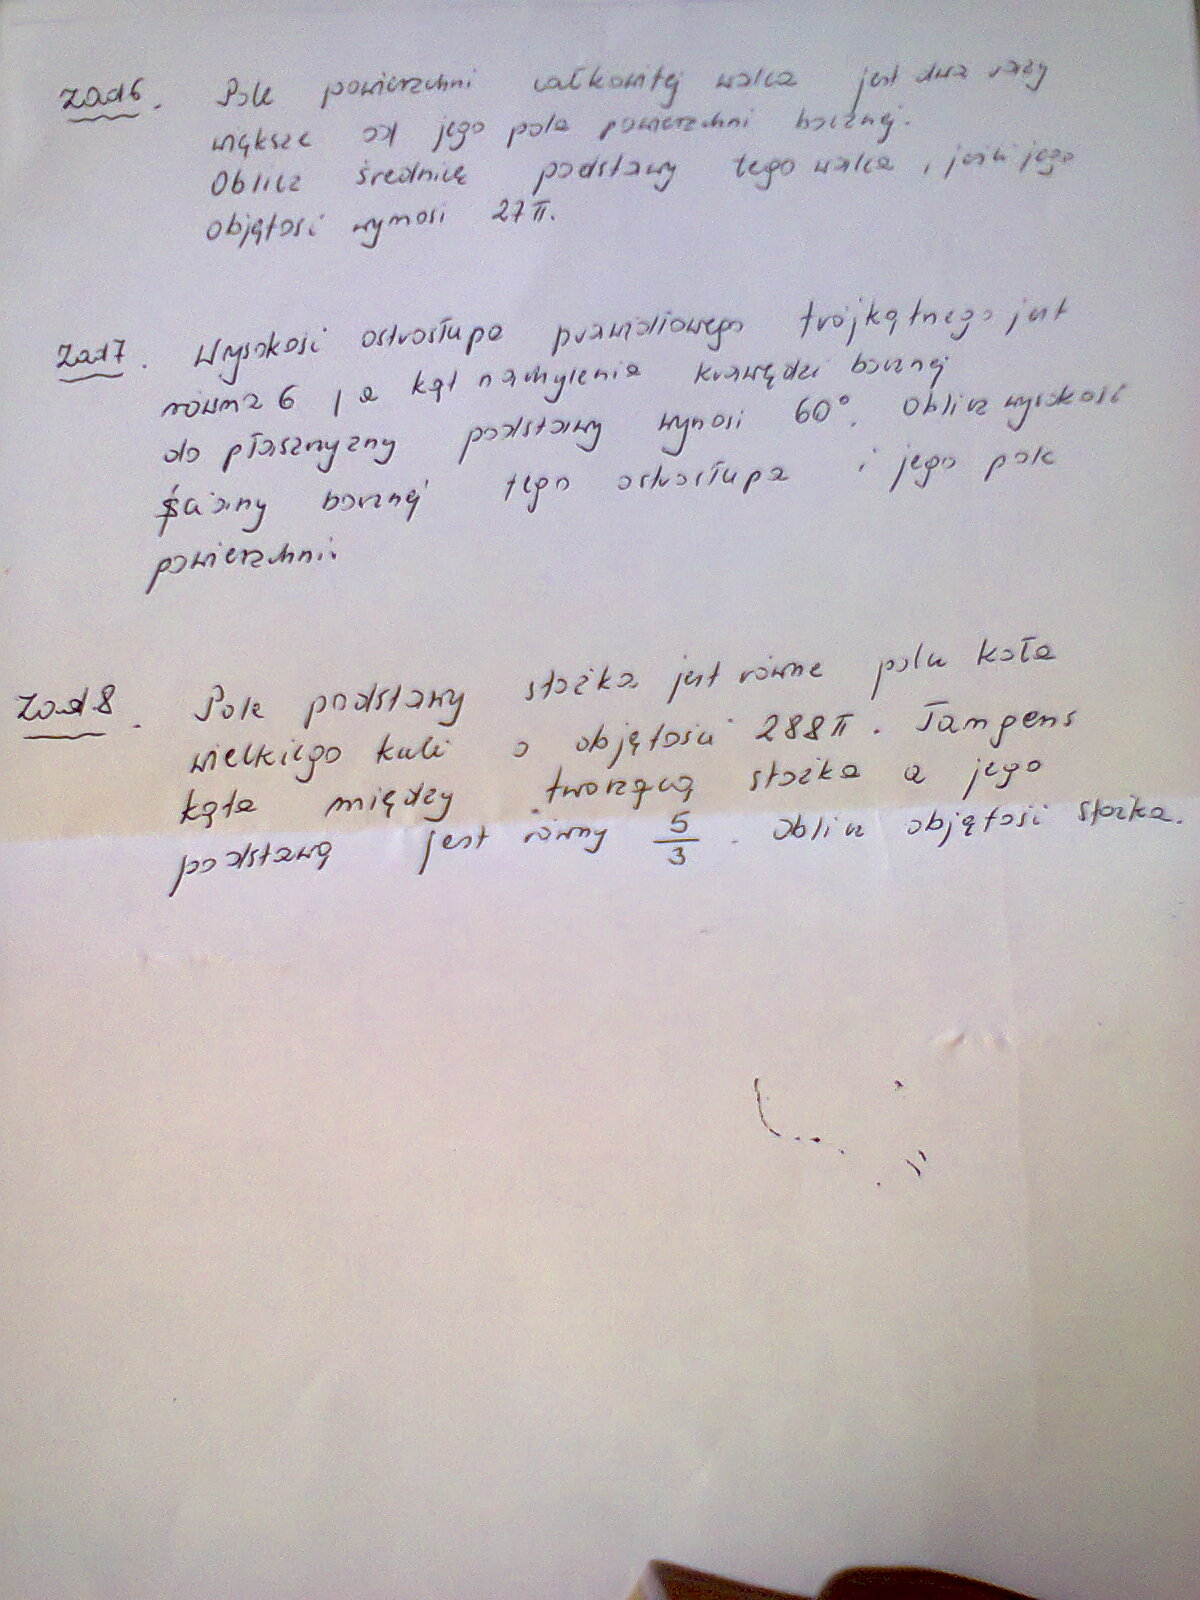 Zad6. Pole powierzchni całkowitej walca jest dwa razy
większe od jego pola powierzchni bocznej.
Oblicz średnicę podstawy tego walca, jeśli jego
objętość wynosi 27π.
Zad7. Wysokość ostrosłupa prawidłowego trójkątnego jest
równa 6, a kąt nachylenia krawędzi bocznej
do płaszczyzny podstawy wynosi 60°. Oblicz wysokość
ściany bocznej tego ostrosłupa i jego pole
powierzchni.
Zad8. Pole podstawy stożka jest równe polu koła
wielkiego kuli o objętości 288π. Tangens
kąta między tworzącą stożka a jego
podstawą jest równy 5/3. Oblicz objętość stożka.